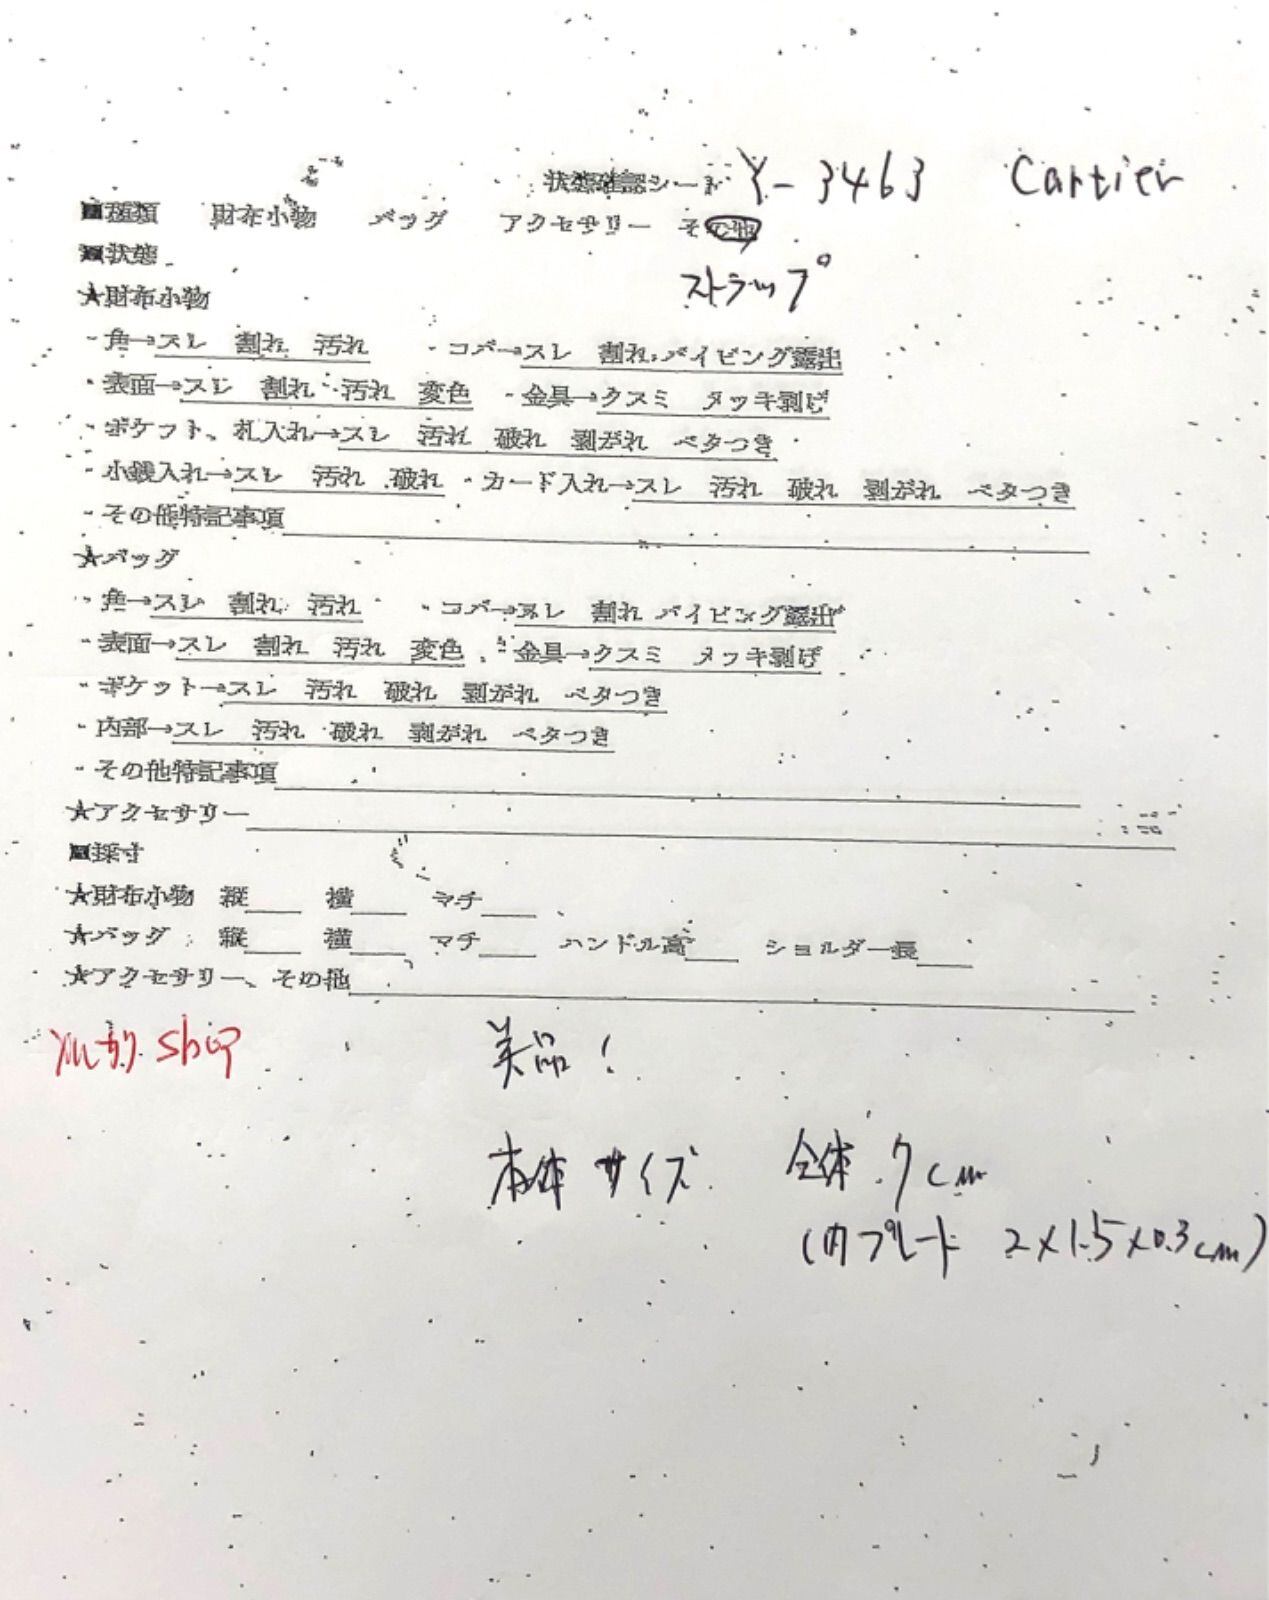 状態確認シート Y-3463 Cartier
■種類 財布小物 バッグ アクセサリー その他
■状態 ストラップ
★財布小物
・角→スレ 割れ 汚れ ・コバ→スレ 割れ パイピング露出
・表面→スレ 割れ 汚れ 変色 ・金具→クスミ メッキ剥げ
・ポケット、札入れ→スレ 汚れ 破れ 剥がれ ベタつき
・小銭入れ→スレ 汚れ 破れ ・カード入れ→スレ 汚れ 破れ 剥がれ ベタつき
・その他特記事項
★バッグ
・角→スレ 割れ 汚れ ・コバ→スレ 割れ パイピング露出
・表面→スレ 割れ 汚れ 変色 ・金具→クスミ メッキ剥げ
・ポケット→スレ 汚れ 破れ 剥がれ ベタつき
・内部→スレ 汚れ 破れ 剥がれ ベタつき
・その他特記事項
★アクセサリー
■採寸
★財布小物 縦 横 マチ
★バッグ 縦 横 マチ ハンドル高 ショルダー長
★アクセサリー、その他
メルカリ shop 美品！
本体サイズ 全体 7cm
(内プレート 2×1.5×0.3cm)